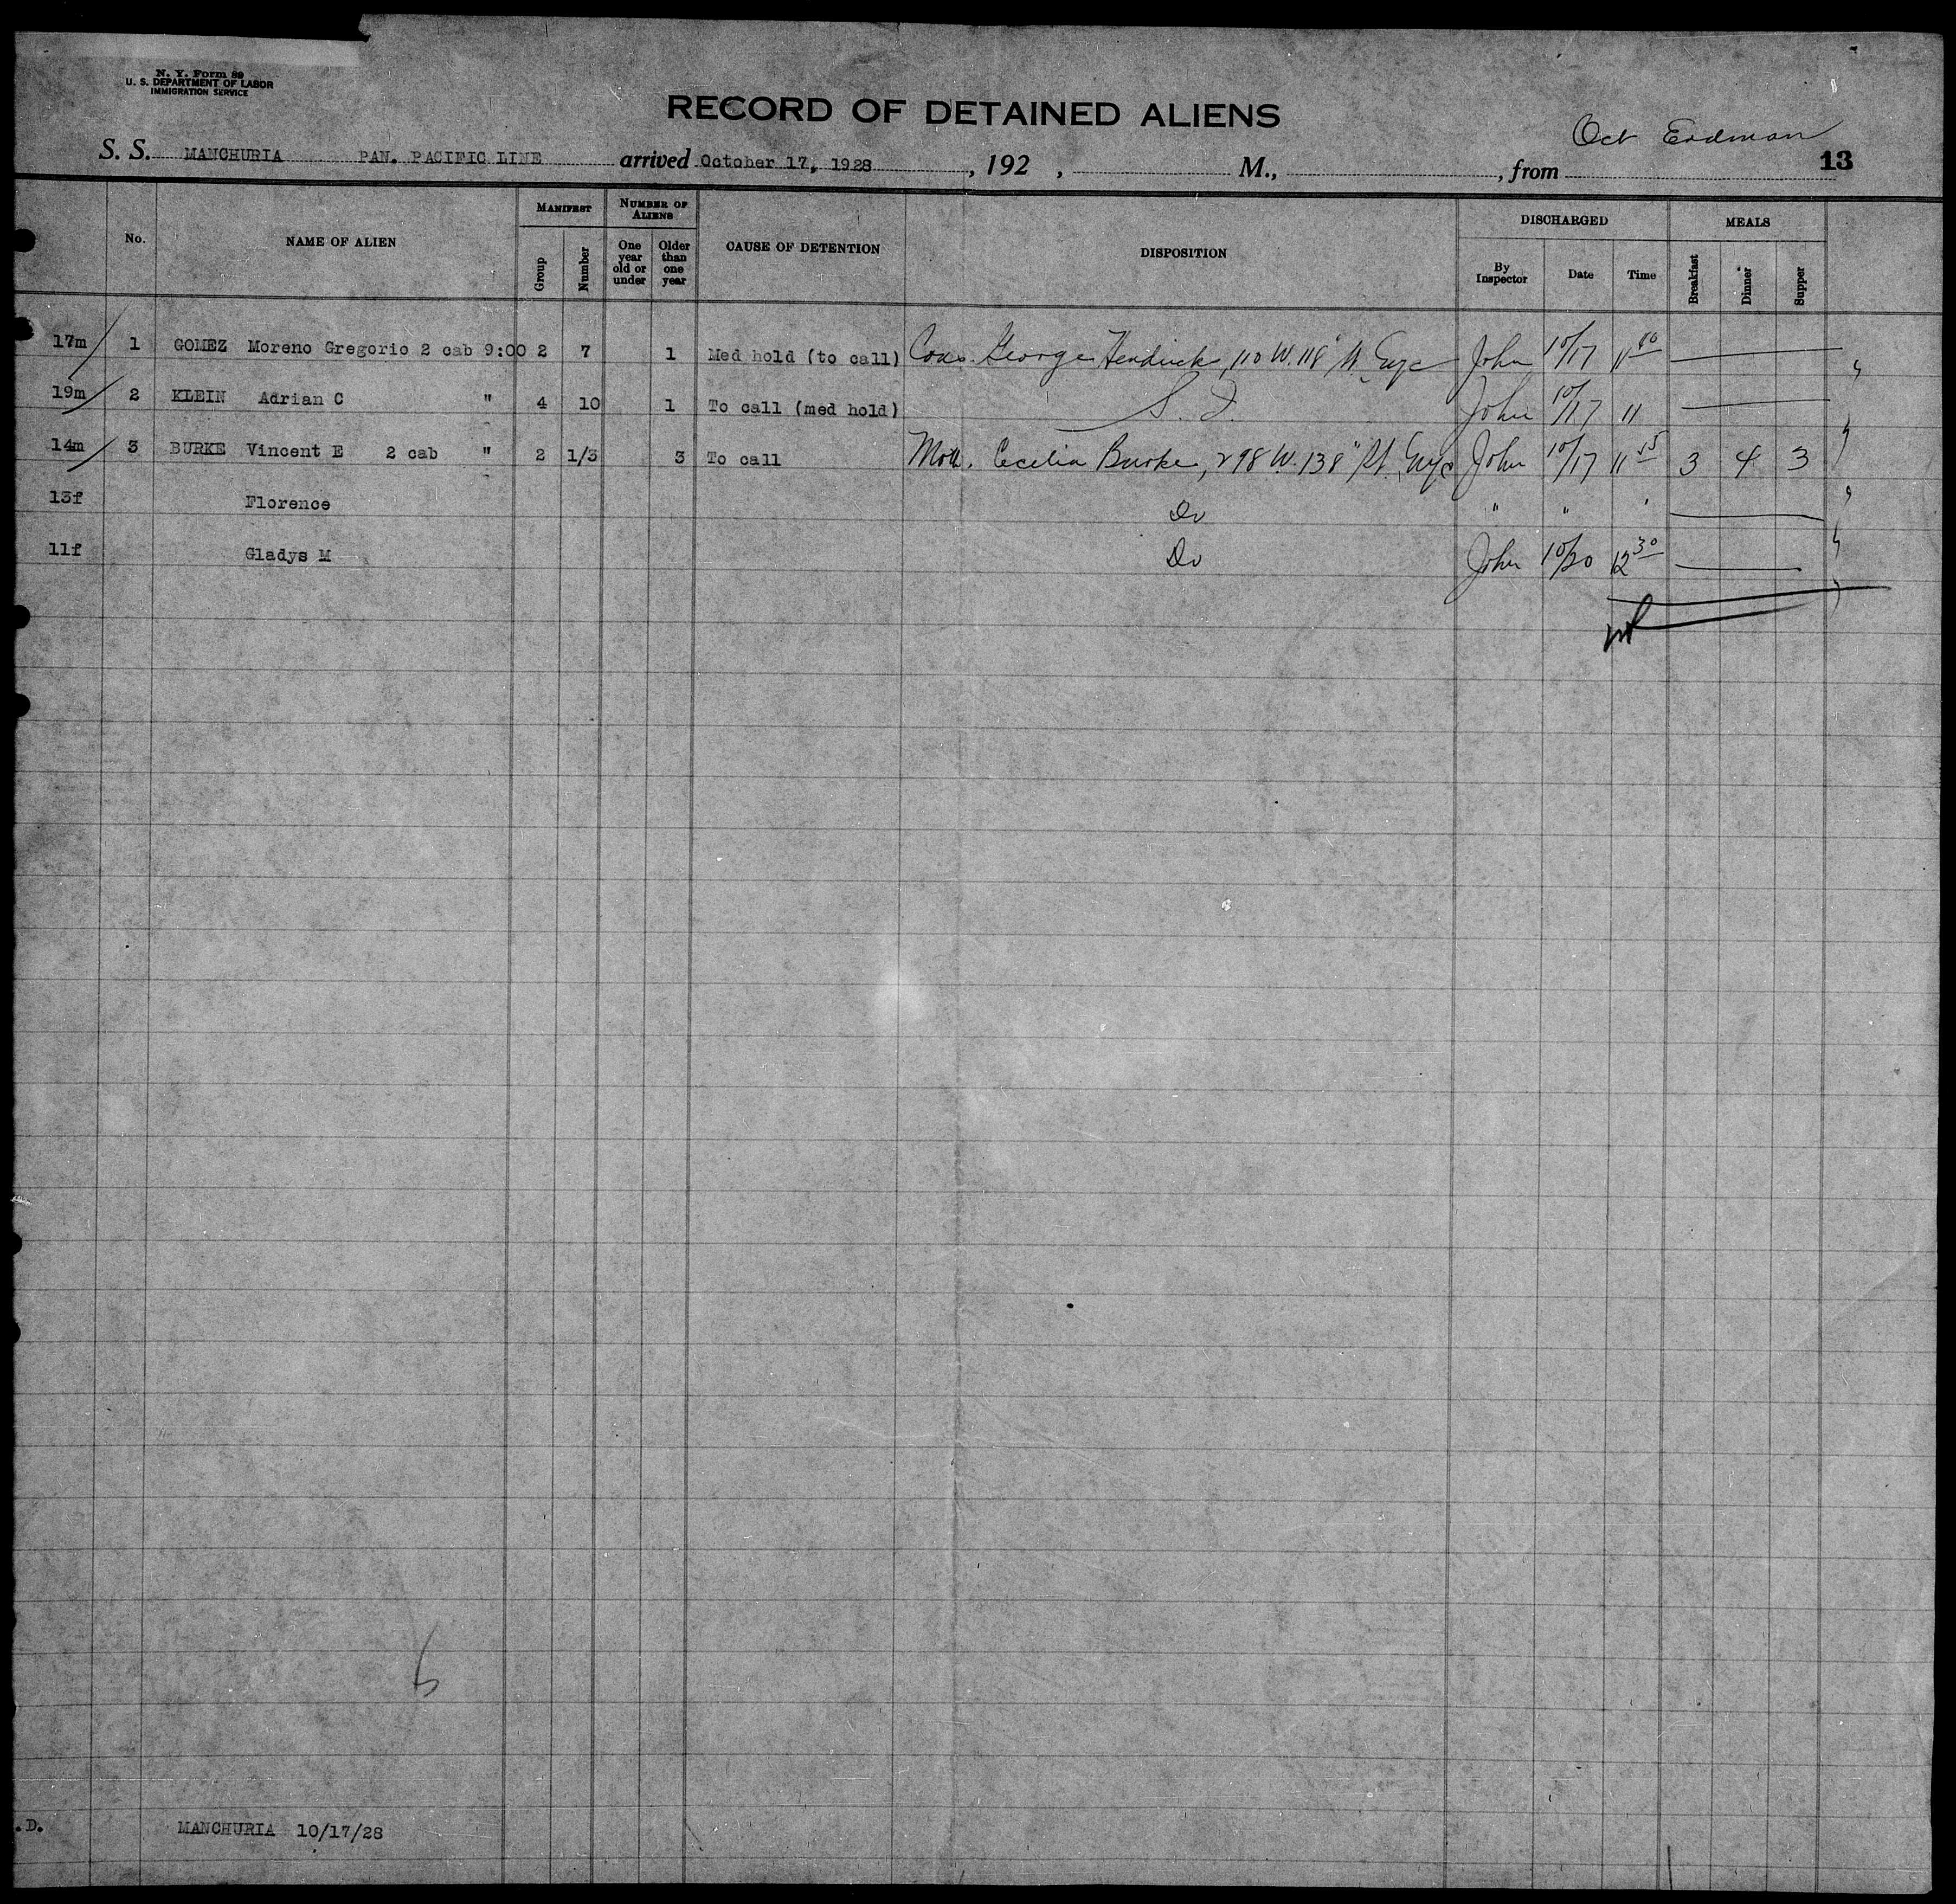 N. Y. Form 89
U. S. DEPARTMENT OF LABOR
IMMIGRATION SERVICE
RECORD OF DETAINED ALIENS
Oct Erdman
13
S. S. MANCHURIA PAN. PACIFIC LINE arrived October 17, 1928, 192 , M., , from
No. NAME OF ALIEN MANIFEST Group Number NUMBER OF ALIENS One year old or under Older than one year CAUSE OF DETENTION DISPOSITION DISCHARGED By Inspector Date Time MEALS Breakfast Dinner Supper
17m 1 GOMEZ Moreno Gregorio 2 cab 9:00 2 7 1 Med hold (to call) Cous. George Hendricks, 110 W. 118" St Nyc John 10/17 11
19m 2 KLEIN Adrian C " 4 10 1 To call (med hold) S. I. John 10/17 11
14m 3 BURKE Vincent E 2 cab " 2 1/3 3 To call Moth. Cecelia Burke, 298 W. 138" St. Nyc John 10/17 11 55 3 4 3
13f Florence Do " " "
11f Gladys M Do John 10/20 12 30
.D. MANCHURIA 10/17/28